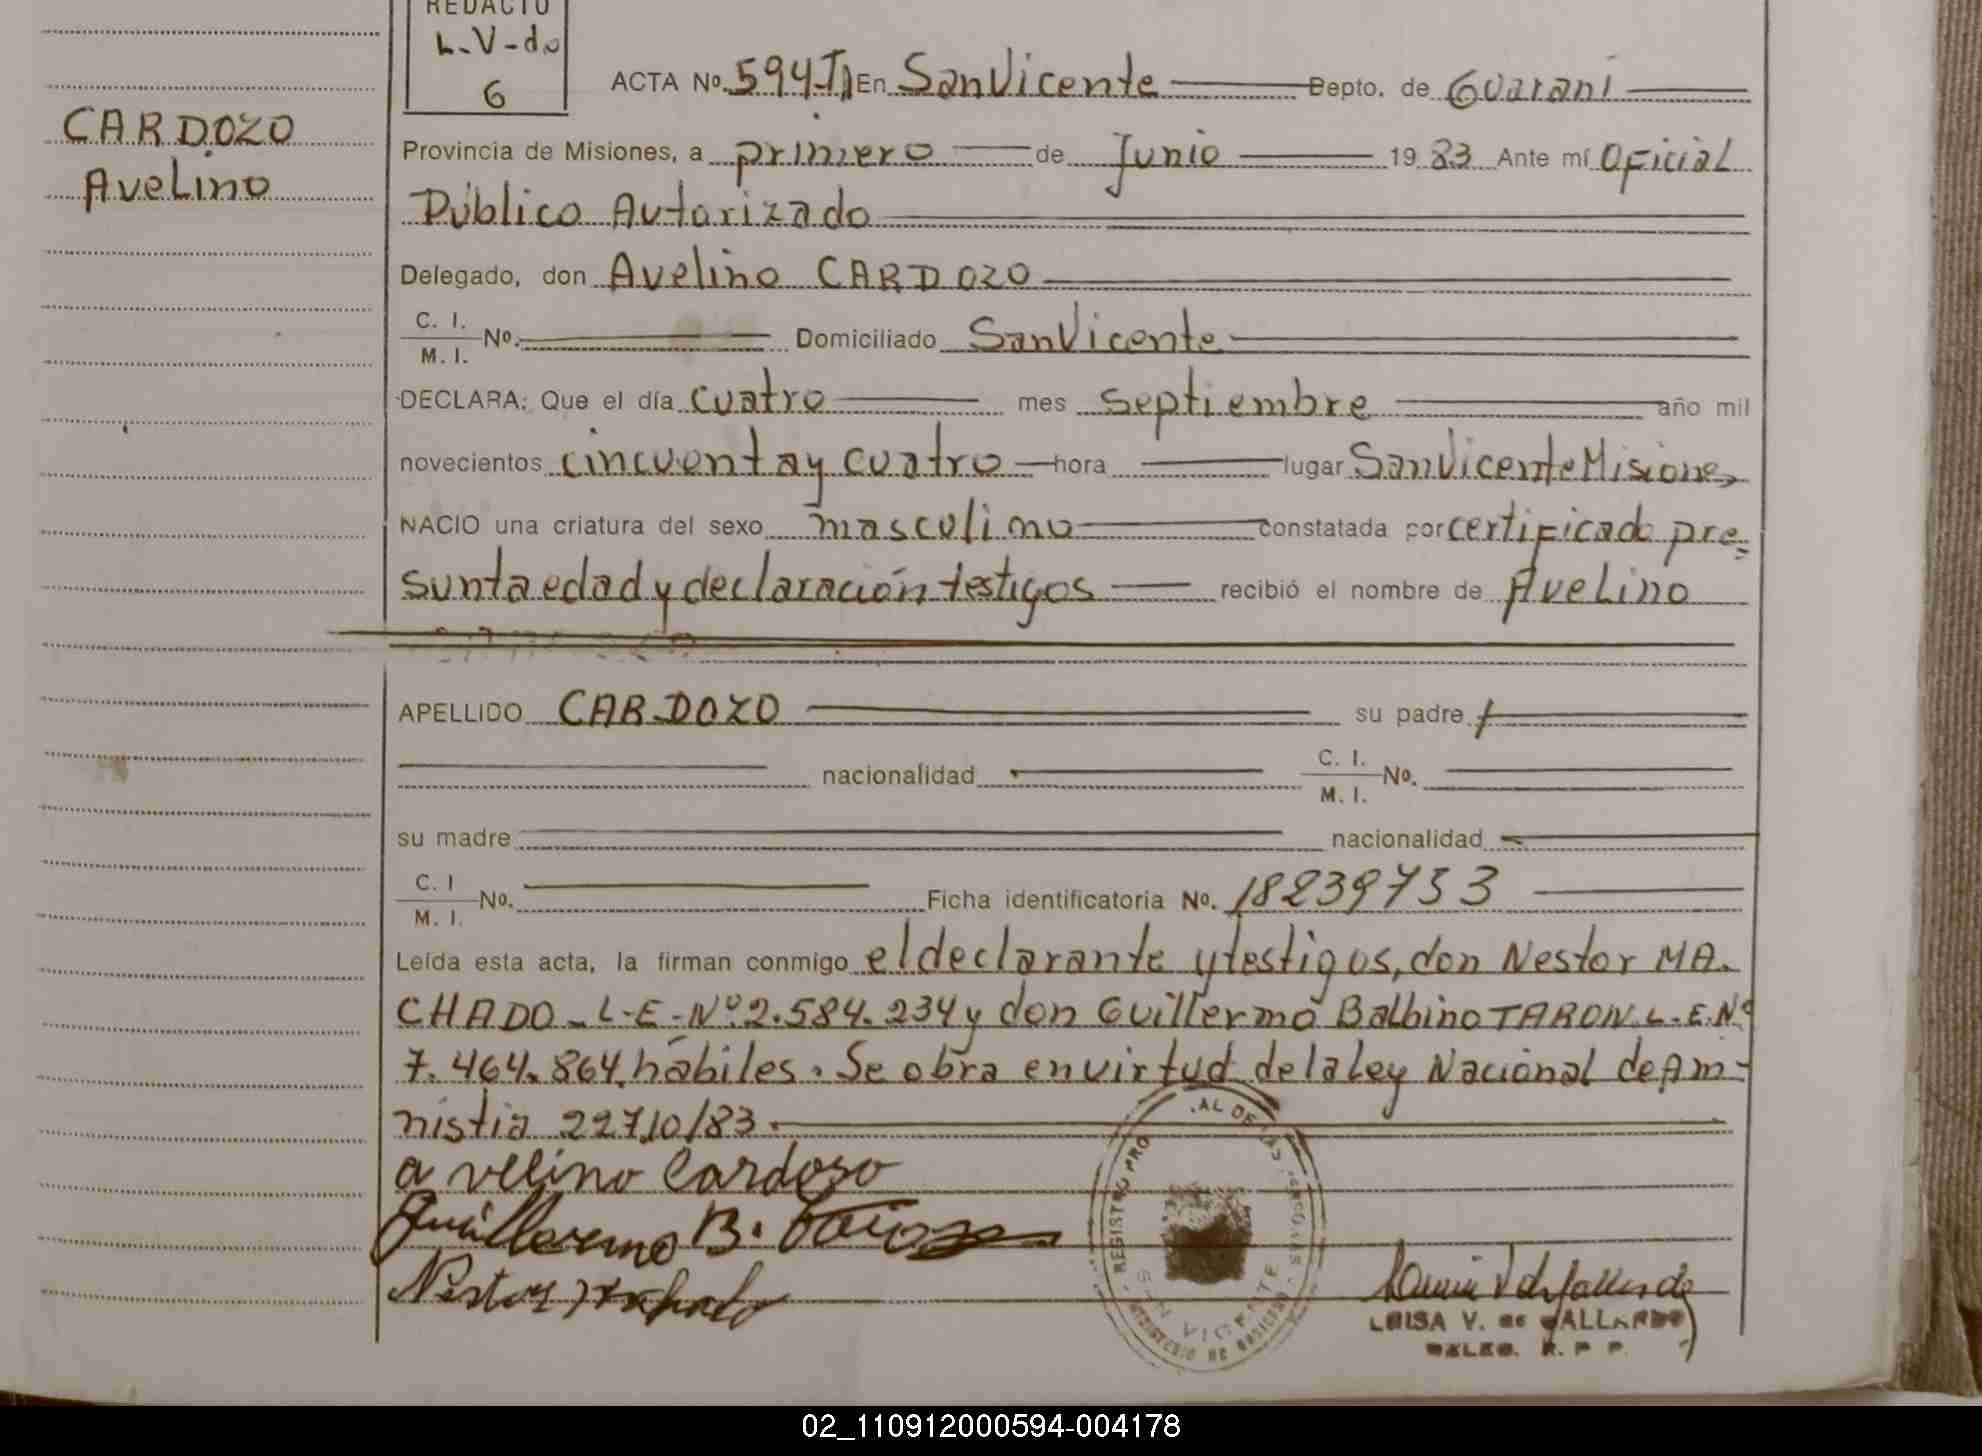 REDACTO
L-V-de
6
CARDOZO
Avelino
ACTA Nº 594TI En San Vicente Depto. de Guaraní
Provincia de Misiones, a primero de Junio 19 83 Ante mí Oficial
Público Autorizado
Delegado, don Avelino CARDOZO
C. I.
M. I. Nº. Domiciliado San Vicente
DECLARA: Que el día cuatro mes septiembre año mil
novecientos cincuenta y cuatro hora lugar San Vicente Misiones
NACIO una criatura del sexo masculino constatada por certificado pre=
sunta edad y declaración testigos recibió el nombre de Avelino
APELLIDO CARDOZO su padre
nacionalidad C. I.
M. I. No.
su madre nacionalidad
C. I
M. I. No. Ficha identificatoria Nº. 18239753
Leída esta acta, la firman conmigo el declarante y testigos, don Nestor MA-
CHADO - L-E-Nº 2.584.234 y don Guillermo Balbino TARON L.E.Nº
7.464.864, hábiles. Se obra en virtud de la ley Nacional de Am-
nistia 22710/83.
avelino Cardoso
Guillermo B.
Nestor Machado
REGISTRO PRO AL DE LAS PERSONAS
SAN VICENTE
LUISA V. de GALLARDO
DELEG. R. P. P.
02_110912000594-004178